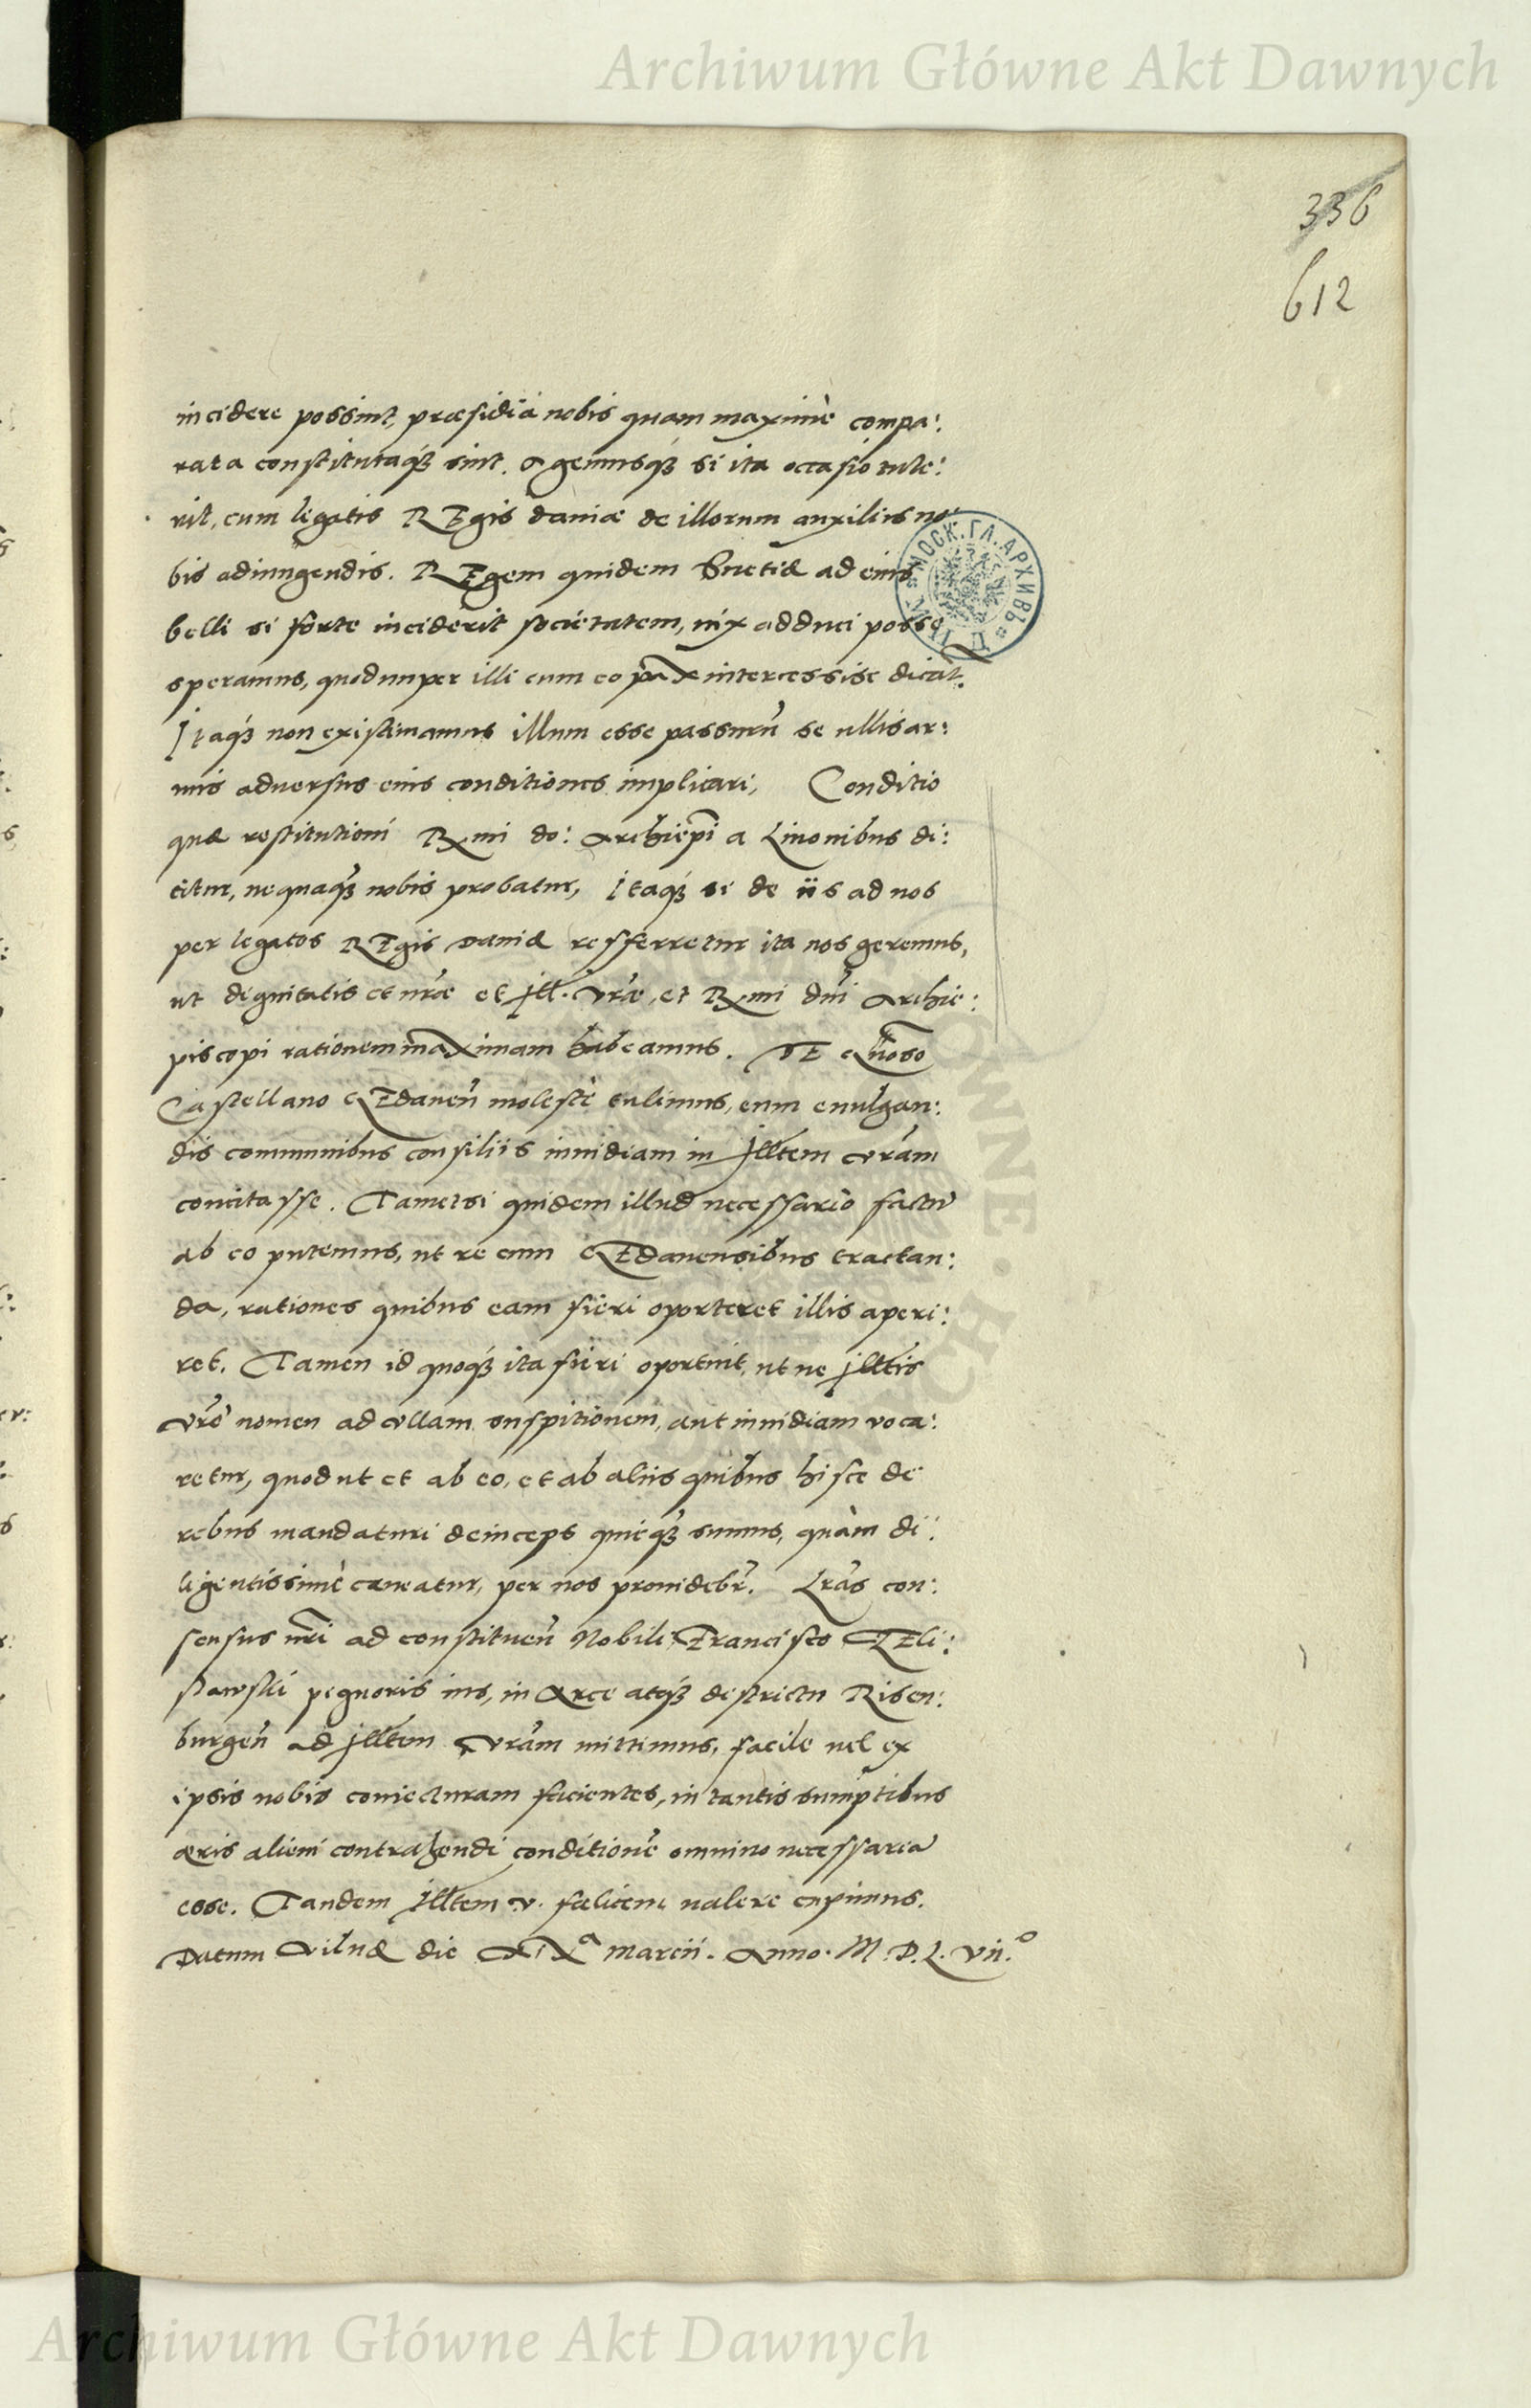 Archiwum Główne Akt Dawnych
336
612
incidere possint, præsidia nobis quam maximè compa:
rata constitutaqȝ sint. Agemusqȝ si ita occasio tule:
rit, cum legatis REgis daniæ de illorum auxiliis no
bis adiungendis. REgem quidem Suetiæ ad eius
belli si forte inciderit societatem, uix adduci posse
speramus, quod nuper illi cum eo pax intercessisse dicat.
Itaqȝ non existimamus illum esse passurũ se ullis ar:
mis aduersus eius conditiones implicari, Conditio
quæ restitutioni Rmi do: Archiepi a Liuonibus di:
citur, nequaqȝ nobis probatur, Itaqȝ si de iis ad nos
per legatos REgis Daniæ resferretur ita nos geremus,
ut dignitatis et nræ et Ill. Vræ, et Rmi dni Archie:
piscopi rationem maximam habeamus. DE Gnoso
Castellano GEdaneñ molestè tulimus, eum euulgan:
dis communibus consiliis inuidiam in Illtem vram
concitasse. Tametsi quidem illud necessariò factũ
ab eo putemus, ut re cum GEdanensibus tractan:
da, rationes quibus eam fieri oporteret illis aperi:
ret. Tamen id quoqȝ ita fieri oportuit, ut ne Illtis
vræ nomen ad vllam suspitionem, aut inuidiam voca:
retur, quod ut et ab eo, et ab aliis quibus hisce de
rebus mandaturi deinceps quicqȝ sumus, quàm di:
ligentissimè caueatur, per nos prouidebr. Lras con:
sensus nri ad constitueñ Nobili Francisco TEli:
stawski pegnoris ius, in Arce atqȝ destrictu Risen:
burgeñ ad Illtem Vram mittimus, facile uel ex
ipsis nobis coniecturam facientes, in tantis sumptibus
æris alieni contrahendi conditionẽ omnino necessariã
esse. Tandem Illtem v. fælicem ualere cupimus.
Datum Vilnæ die XIXa marcii. Anno. M. D. L. vii.o
МОСК. ГЛ. АРХИВЪ
Archiwum Główne Akt Dawnych